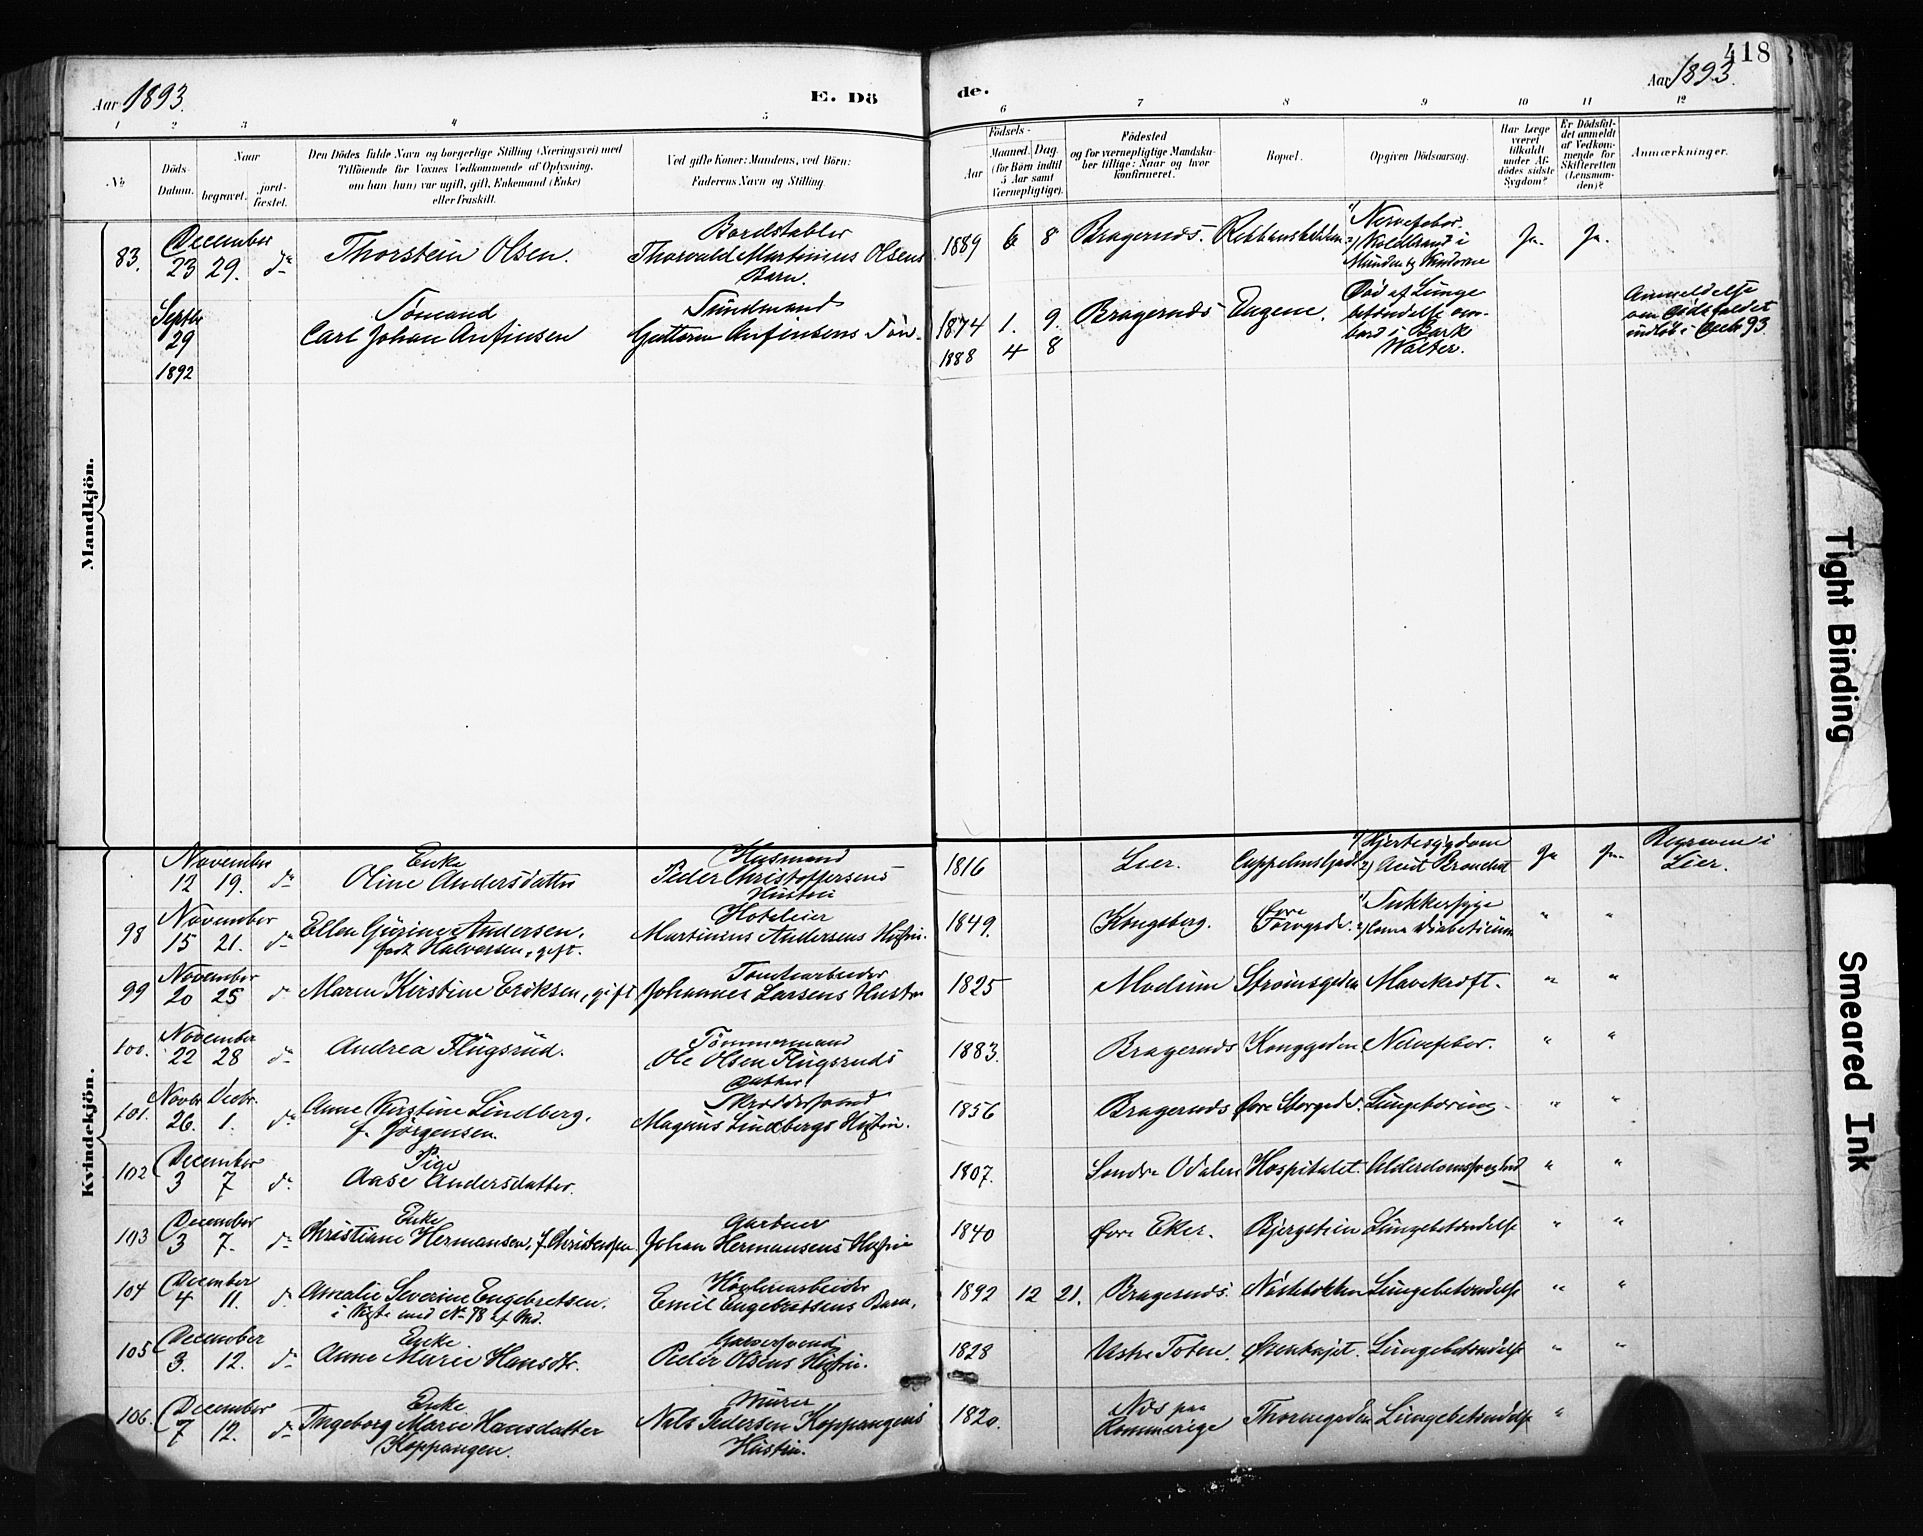 418
Aar 1893.
E. Dö
de.
Aar 1893.
1 2 3 4 5 6 7 8 9 10 11 12
No
Döds-
Datum.
Naar
begravet.
jord-
fæstet.
Den Dödes fulde Navn og borgerlige Stilling (Næringsvei) med
Tilföiende for Voxnes Vedkommende af Oplysning,
om han (hun) var ugift, gift, Enkemand (Enke)
eller fraskilt.
Ved gifte Koner: Mandens, ved Börn:
Faderens Navn og Stilling.
Födsels-
Aar
Maaned. Dag.
(for Börn indtil
5 Aar samt
Værnepligtige).
Födested
og for værnepligtige Mandska-
ber tillige: Naar og hvor
konfirmeret.
Bopæl.
Opgiven Dödsaarsag.
Har Læge
været
tilkaldt
under Af-
dödes sidste
Sygdom?
Er Dödsfal-
det anmeldt
af Vedkom-
mende for
Skifteretten
(Lensman-
den)?
Anmærkninger.
Mandkjön.
83.
December
23 29. do
Thorstein Olsen.
Bordstabler
Thorvald Martinius Olsens
Barn.
1889 6 8
Bragernæs.
1) Nervefeber.
2) Koldbrand i
Munden og Kinderne
Ja. Ja.
Septbr
29
1892
Sømand
Carl Johan Anfinsen
Sundmand
Guttorm Anfinsens Søn.
1874 1. 9.
1888 4 8
Bragernæs
Engene.
Død af Lunge
betændelse om-
bord i Bark
Walter.
Anmeldelse
om Dødsfaldet
indløb i Decb 93
Kvindekjön.
November
12 19. do
Enke
Oline Andersdatter
Husmand
Peder Christoffersens
Hustru
1816
Lier.
1) Hjertesygdom
2) Acut Bronchit
Ja Ja
Begraven i
Lier.
98
November
15 21. do
Ellen Gurine Andersen,
født Halvorsen, gift.
Hoteleier
Martinius Andersens Hustru.
1849.
Kongsberg.
Øvre
Torvgade.
1) Sukkersyge
2) Coma Diabeticum
" "
99
November
20 25 do
Maren Kirstine Eriksen, gift
Tomtearbeider
Johannes Larsens Hustru
1825
Modum
Strømsgaden
Mavekræft.
" "
100.
November
22 28 do
Andrea Flugsrud.
Tømmermand
Ole Olsen Flugsruds
Datter
1883.
Bragernæs
Konggaden
Nervefeber.
" "
101.
Novbr Decbr.
26. 1. do
Anne Kirstine Lindberg,
f. Jørgensen.
Skræddersvend
Magnus Lindbergs Hustru.
1856
Bragernæs
Øvre Storgade.
Lungetæring.
" "
102
December
3 7 do
Pige
Aase Andersdatter.
1807.
Søndre Odalen
Hospitalet.
Alderdomssvaghed
" "
103
December
3 7. do
Enke
Christiane Hermansen, f. Christensen.
Gartner
Johan Hermansens Hustru
1840
Øvre Eker.
Bjergstein
Lungebetændelse
" "
104
December
4 11. do
Amalie Severine Engebretsen.
i Kiste med No 78 af Md.
Høvleriarbeider
Emil Engebretsens Barn.
1892 12 21.
Bragernæs.
Nøstebakken
Lungebetændelse
" "
105
December
3. 12. do
Enke
Anne Marie Hansdtr.
Garversvend
Peder Olsens Hustru.
1828
Vestre Toten.
Lungebetændelse
" "
106.
December
7 12. do
Enke
Ingeborg Marie Hansdatter
Koppangen.
Murer
Nils Pedersen Koppangens
Hustru.
1820.
Næs paa
Rommerige
Thornegaden
Lungebetændelse
"
Tight Binding
Smeared Ink